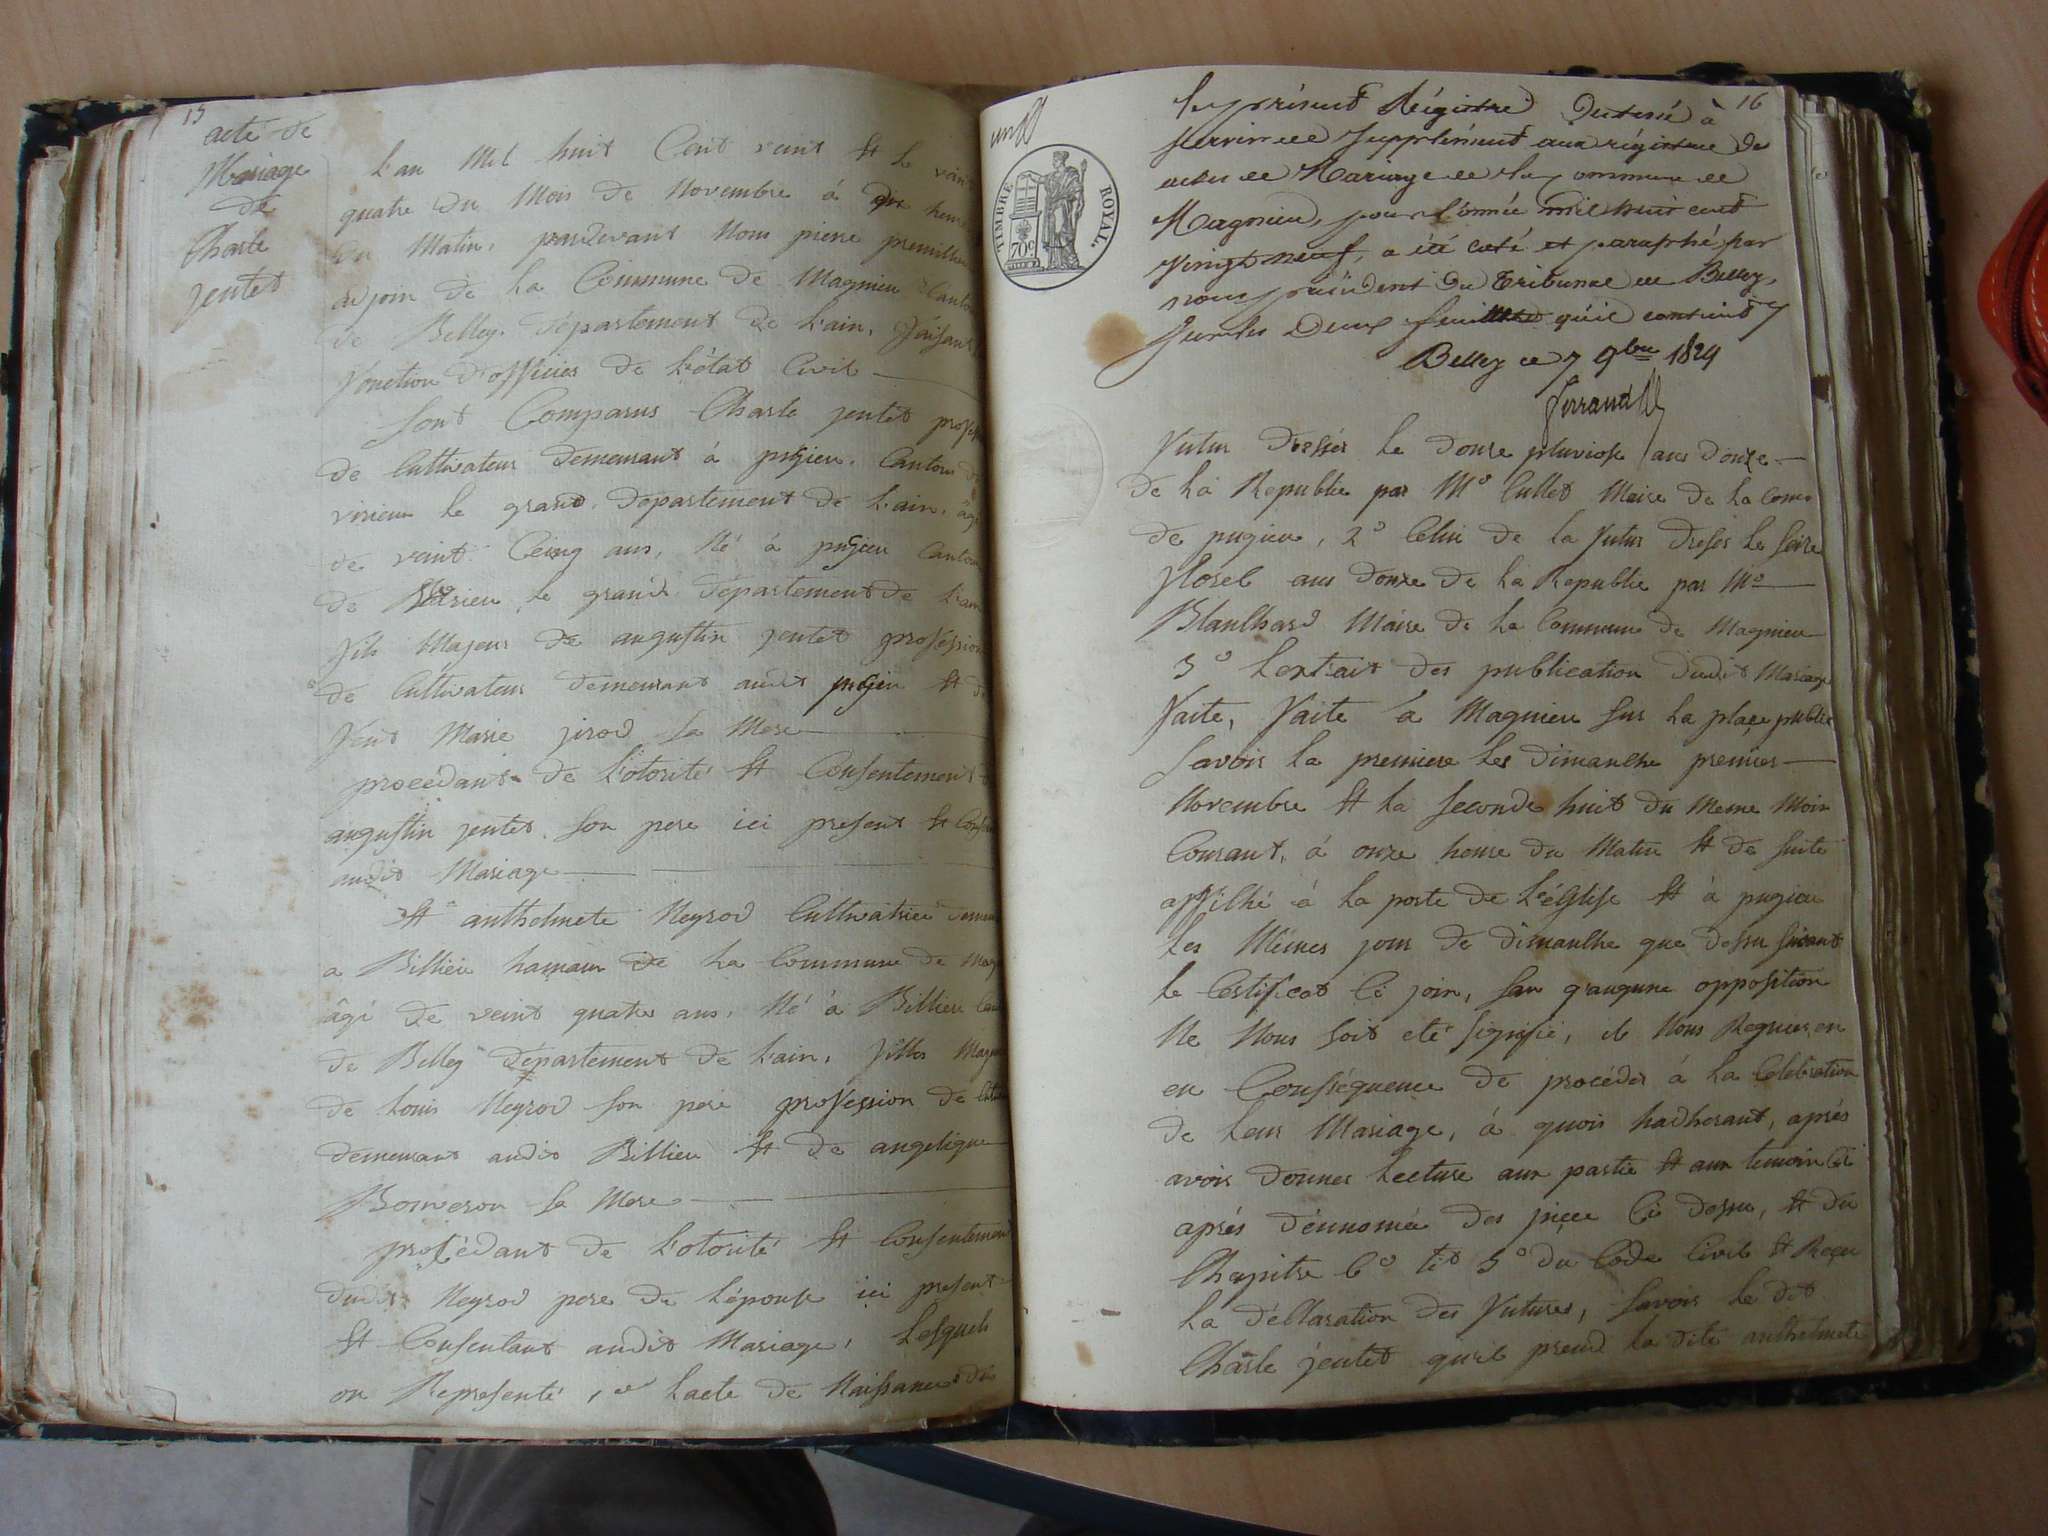 15
acte de
Mariage
de
Charle
jentet
L'an Mil huit Cent veint et le vein
quatre du Mois de Novembre à dix heure
du Matin, pardevant Nous pierre premillieu
adjoin de la Commune de Magnieu Canton
de Belley, Département de L'ain, faisant
fonction d'officier de L'état Civil
Sont Comparus Charle jentet profe
de Cultivateur demeurant à pugieu, Canton de
virieu le grand, Departement de L'ain, âgé
de veint Ceinq ans, Né à pugieu Canton
de Virieu le grand Département de L'ain
fils Majeur de augustin jentet profession
de Cultivateur demeurant audit pugieu et de
feut Marie jirod sa Mere
procédant de L'otorité et Consentement
augustin jentet son pere ici present et Conse
audit Mariage
et anthelmete Neyrod Cultivatrice demeu
a Billieu hamaux de la Commune de Mag
âgé de veint quatre ans, Né à Billieu Can
de Belley Département de L'ain, filles Maj
de Louis Neyrod son pere profession de Culti
demeurant audit Billieu et de angelique
Bonveron sa Mere
profédant de L'otorité et Consentement
dudit Neyrod pere de L'épouse ici present
et Consentant audit Mariage, Lesquels
on Representé, 1º Lacte de Naissance du
16
TIMBRE ROYAL.
70 c.
le présent Régistre destiné à
servir de Supplément aux régistres des
actes de Mariage de la Commune de
Magnieu, pour l'année mil huit cent
vingt neuf, a été coté et paraphé par
nous président du Tribunal de Belley,
sur les Deux feuilles qu'il contient
Belley ce 7 9bre 1829
Ferrand
futur dressés le douze pluviose ans douze
de La Republic par Mº Cullet Maire de La Com
de pugieu, 2º Celui de la futur dreser les seize
florel ans douze de La Republic par Mº
Blanlhard Maire de La Commune de Magnieu
3º Lextrait des publication dudit Mariage
faite, faite à Magnieu sur La place public
Savoir la premiere Les dimanlhe premier
Novembre et la seconde huit du Meme Mois
Courant, à onze heure du Matin et de suite
affilhé à La porte de L'églisse et à pugieu
Les Mêmes jour de dimanlhe que dessu suivant
le Certificat Ci join, san q'augune opposition
Ne Nous soit eté signifié, il Nous Requier, en
en Conséquence de procéder à La Celebration
de Leur Mariage, à quois hadherant, après
avoir donner Lecture aux partie et aux temoin Ci
après dennomée des piece Ci dessu, et du
Chapitre 6º tit 5º du Code Civil et Reçu
La déClaration des futures, Savoir Le dit
Charle jentet qu'il prend La dite anthelmete